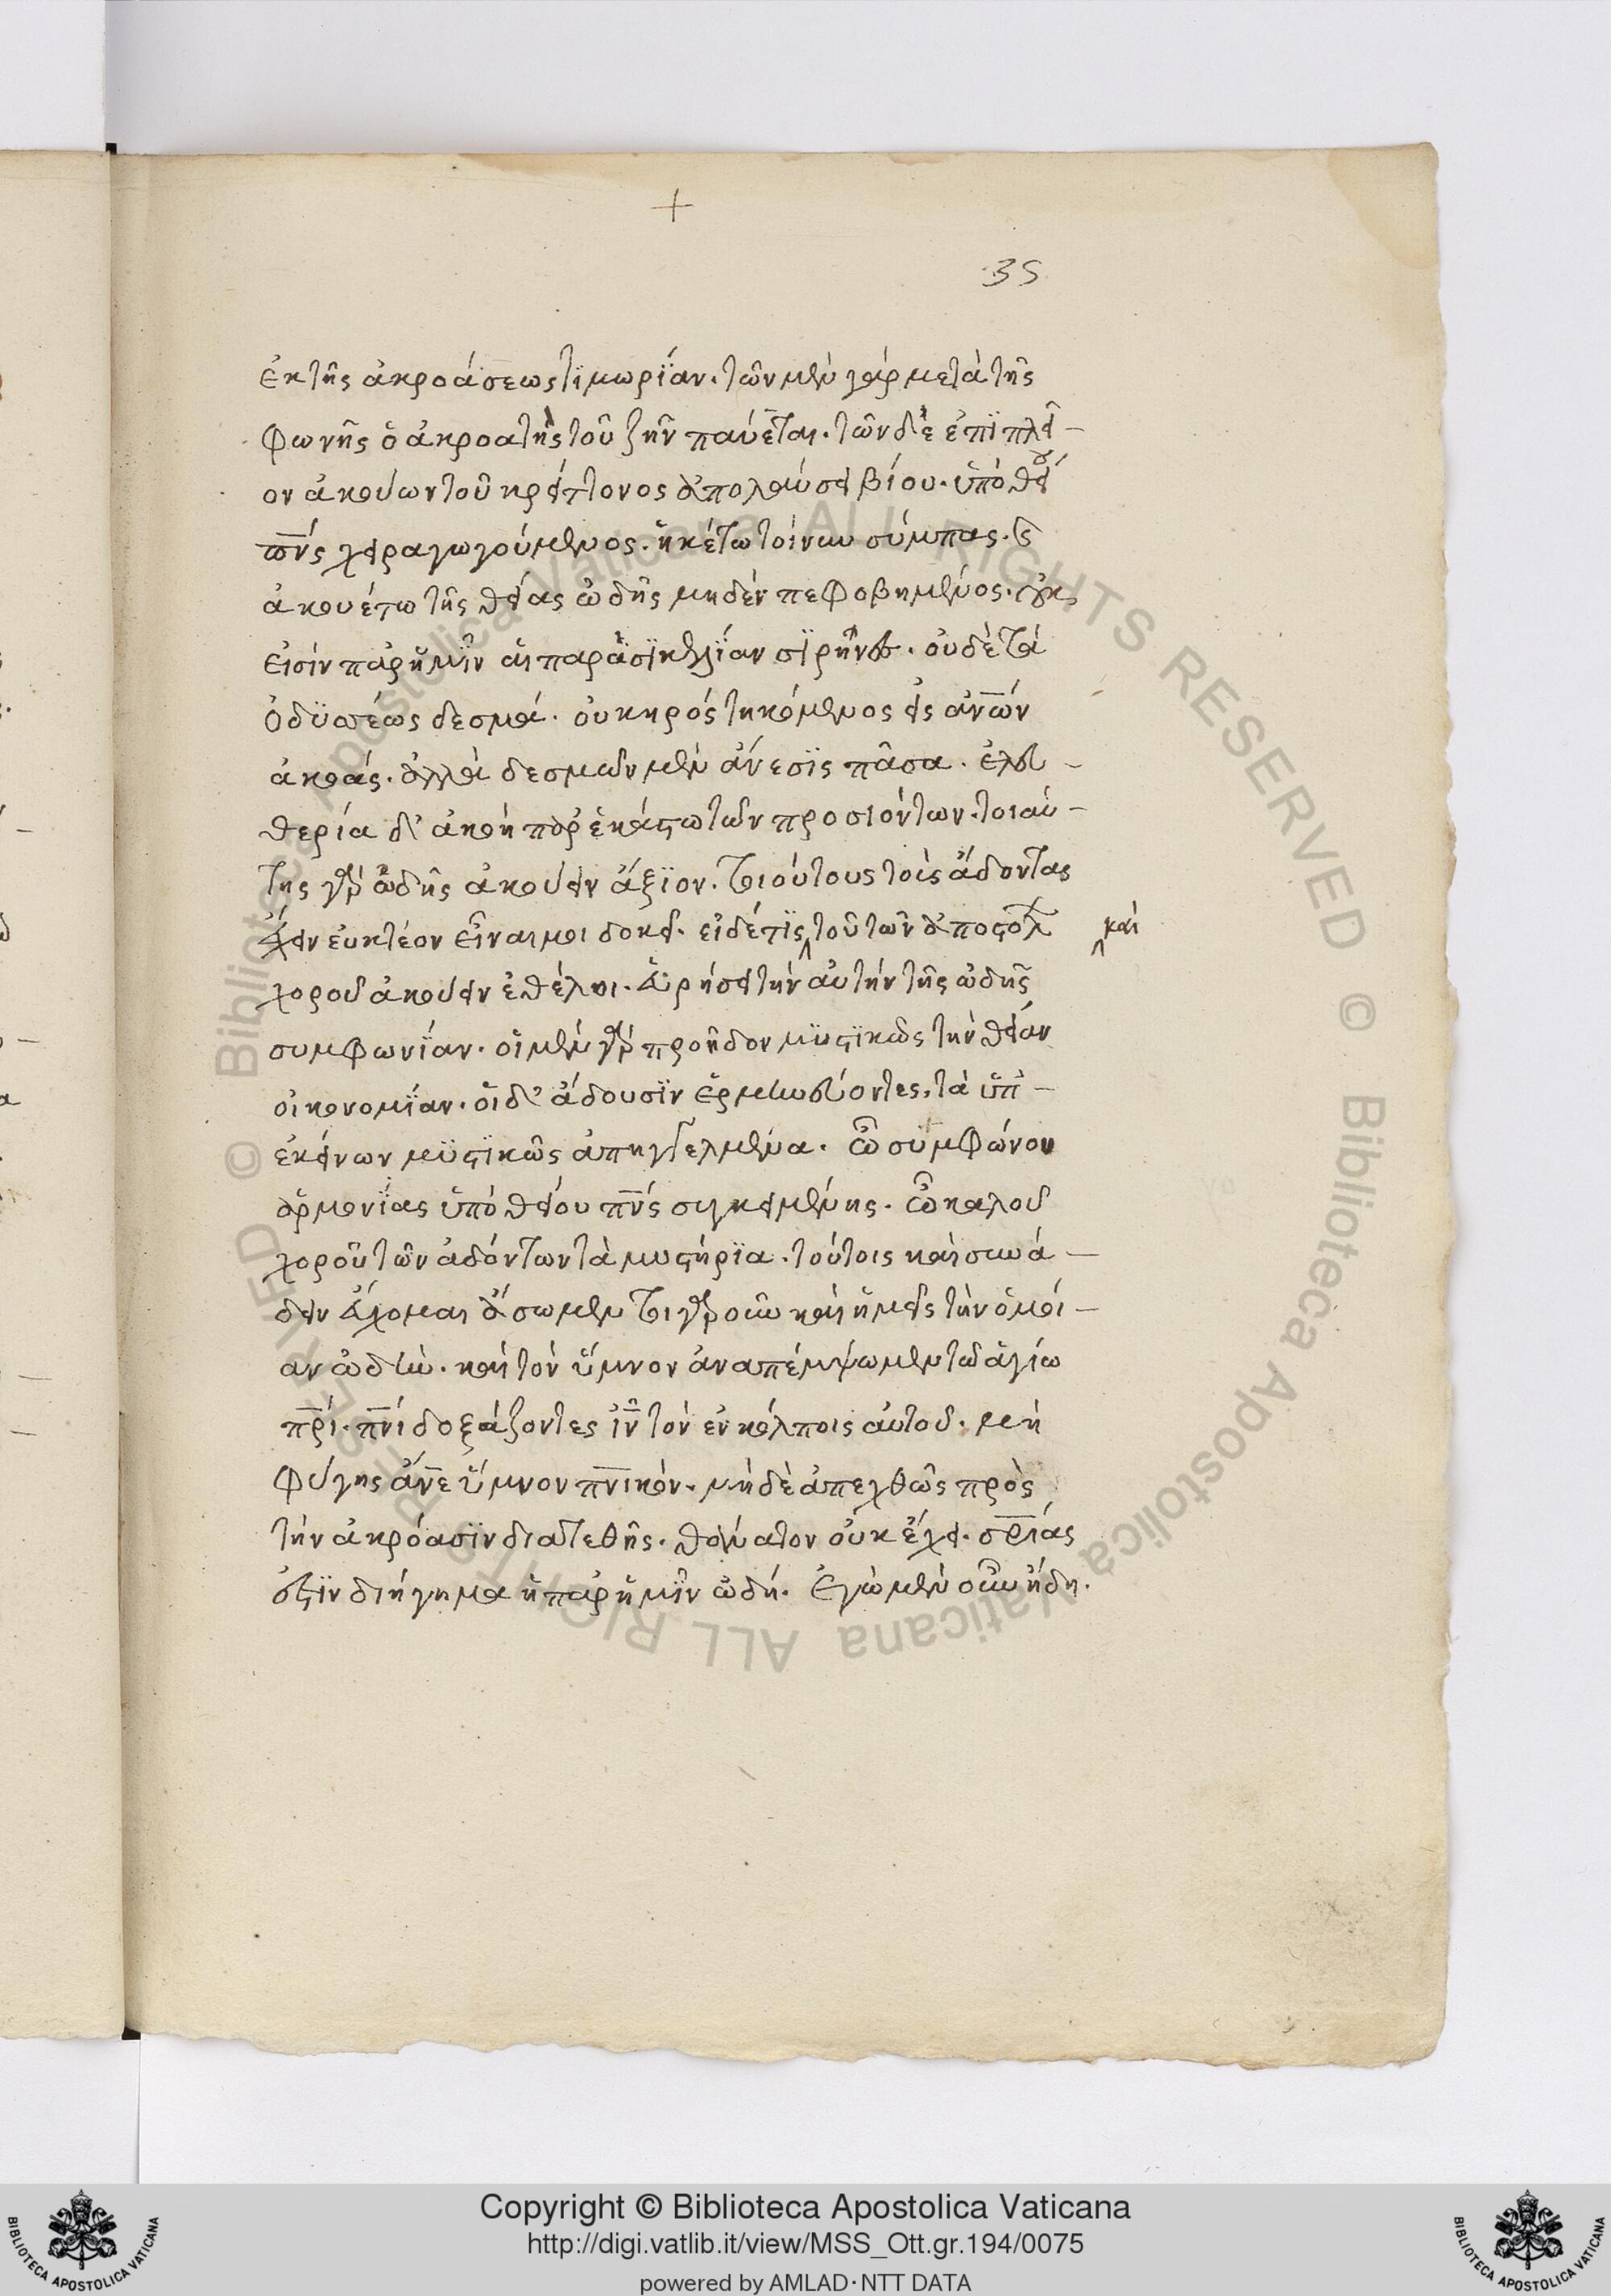 +
35
ἐκ τῆς ἀκροάσεως τϊμωρΐαν. τῶν μὲν γάρ μετὰ τῆς
φωνῆς ὁ ἀκροατὴς τοῦ ζῆν παύεται. τῶν δὲ ἐπϊ πλεῖ-
ον ἀκούων τοῦ κρείττονος ἀπολαύσει βίου. ὑπό θείου
πν̅ς χειραγωγούμενος. ἡκέτω τοίνυν σύμπας. καὶ
ἀκουέτω τῆς θείας ὠδῆς μηδὲν πεφοβημένος. οὐκ
εἰσίν παρ ἡμῖν αἱ παρὰ σϊκελΐαν σϊρῆνες. οὐδὲ τὰ
ὀδϋσέως δεσμά. οὐ κηρός τηκόμενος εἰς ἀν̅ων
ἀκοάς. ἀλλὰ δεσμῶν μὲν ἄνεσϊς πᾶσα. ἐλευ-
θερία δ' ἀκοή παρ ἑκάστω τῶν προσιόντων. τοιαύ-
της γὰρ ὠδῆς ἀκούειν ἄξϊον. τοιούτους τοὺς ἄδοντας
ἔχειν εὐκτέον εἶναι μοι δοκεῖ. εἰ δέ τϊς τοῦ τῶν ἀποστόλ
καὶ
χοροῦ ἀκούειν ἐθέλοι. εὑρήσει τὴν αὐτήν τῆς ὠδῆς
συμφωνΐαν. οἱ μὲν γὰρ προῆδον μϋστϊκῶς τὴν θείαν
οἰκονομΐαν. οἱ δ' ἄδουσϊν ἑρμηνεύοντες. τὰ ὑπ'-
ἐκείνων μϋστϊκῶς ἀπηγγελμένα. ὢ συμφώνου
ἁρμονΐας ὑπό θείου πν̅ς συγκειμένης. ὢ καλοῦ
χοροῦ τῶν ἀδόντων τὰ μυστήρϊα. τούτοις καὶ συνά-
δειν εὔχομαι ἄσωμεν τοιγαροῦν καὶ ἡμεῖς τὴν ὁμοί-
αν ὠδὴν. καὶ τὸν ὕμνον ἀναπέμψωμεν τῶ ἁγίω
πρ̅ί. πν̅ί δοξάζοντες ἰν̅ τὸν ἐν κόλποις αὐτοῦ. μὴ
φύγης ἄν̅ε ὕμνον πν̅ικόν. μηδὲ ἀπεχθῶς πρὸς
τὴν ἀκρόασϊν διατεθῆς. θάνατον οὐκ ἔχει. σρ̅ιάς
ἐστϊν διήγημα ἡ παρ ἡμῖν ὠδή. Ἐγὼ μὲν οὖν ἤδη.
Copyright © Biblioteca Apostolica Vaticana
http://digi.vatlib.it/view/MSS_Ott.gr.194/0075
powered by AMLAD·NTT DATA
BIBLIOTECA APOSTOLICA VATICANA
BIBLIOTECA APOSTOLICA VATICANA
© Biblioteca Apostolica Vaticana ALL RIGHTS RESERVED © Biblioteca Apostolica Vaticana ALL RIGHTS RESERVED